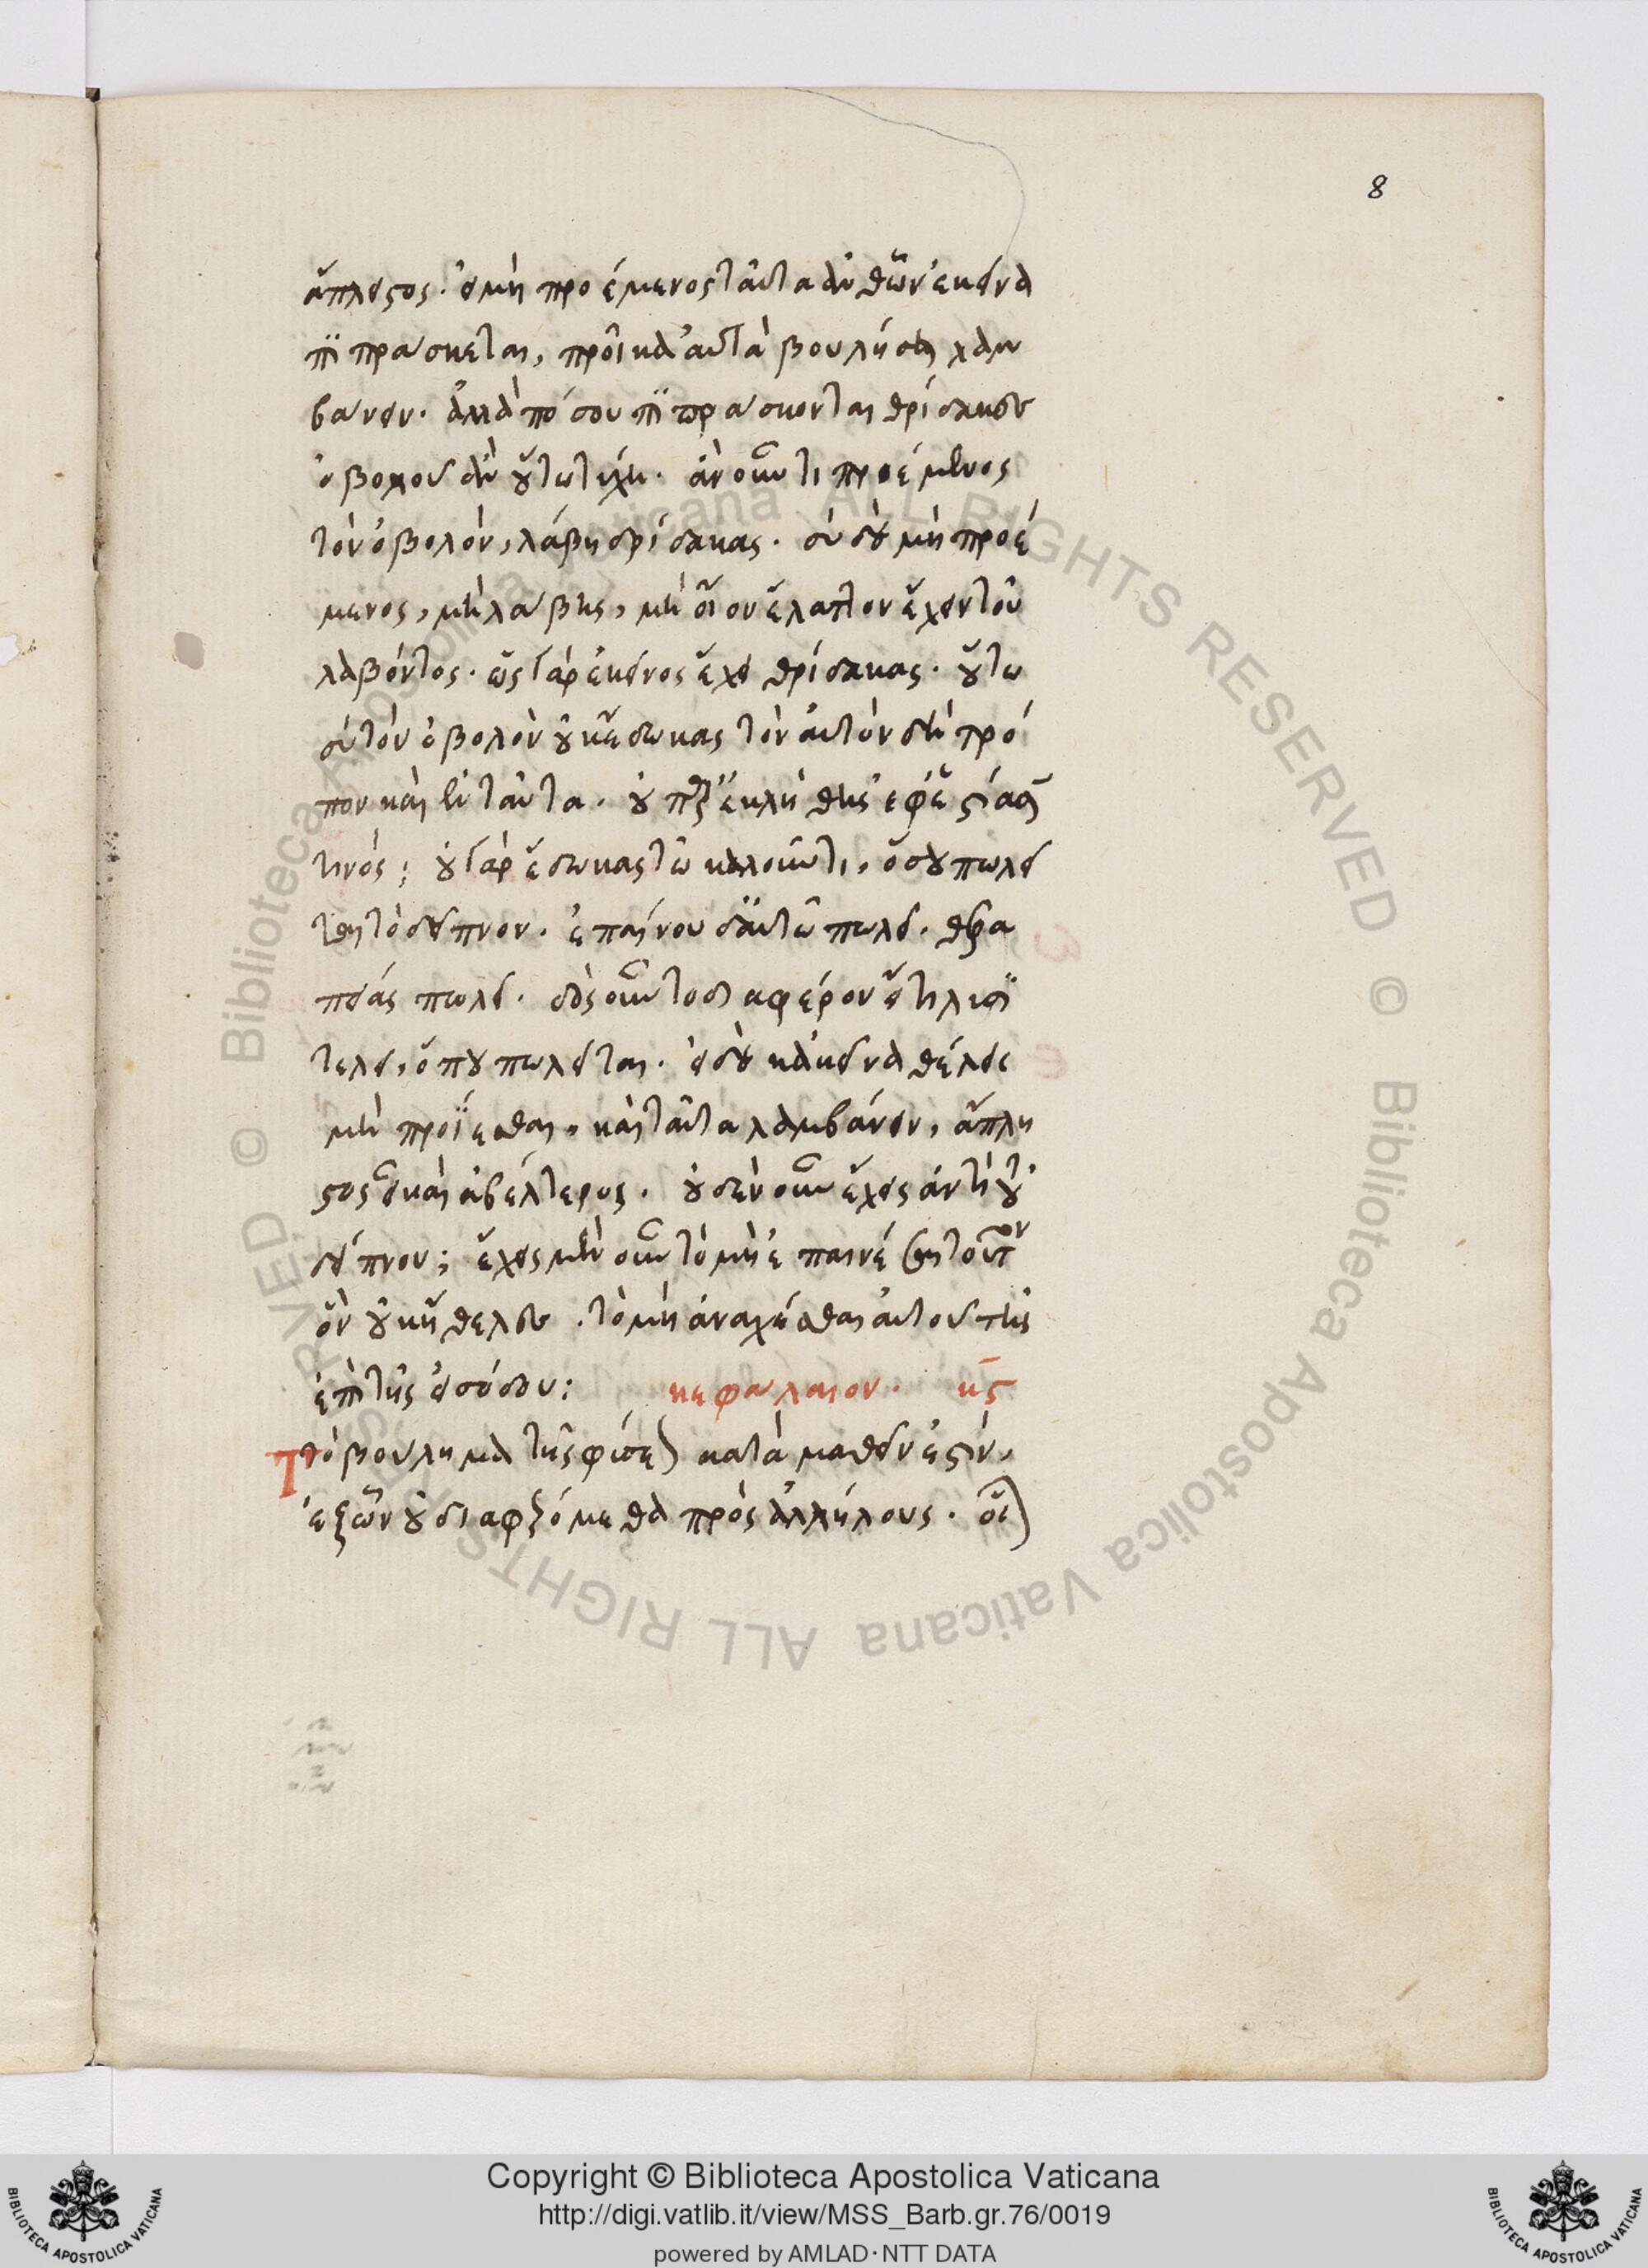 8
ἄπλειστος. εἰ μὴ προέμενος ταῦτα ἀνθ' ὧν ἐκεῖνα
πιπράσκεται, προῖκα αὐτὰ βουλήσῃ λαμ
βάνειν. ἀλλὰ πόσου πιπράσκονται θρίδακες
ὀβολοῦ ἂν οὕτω τύχῃ. ἂν οὖν τι προέμενος
τὸν ὀβολὸν, λάβῃ θρίδακας. σὺ δὲ μὴ προέ
μενος, μὴ λάβῃς, μὴ οἴου ἔλαττον ἔχειν τοῦ
λαβόντος. ὡς γὰρ ἐκεῖνος ἔχει θρίδακας. οὕτω
σὺ τὸν ὀβολὸν οὐκ ἔδωκας τὸν αὐτὸν δὴ τρό
πον καὶ ἐνταῦθα. οὐ παρεκλήθης ἐφ' ἑστίασίν
τινος; οὐ γὰρ ἔδωκας τῷ καλοῦντι, ὅσου πωλεῖ
ται τὸ δεῖπνον. ἐπαίνου δ' αὐτῶ πωλεῖ. θερα
πείας πωλεῖ. δὸς οὖν τὸ διαφέρον εἴ τι λυσι
τελεῖ, ὅπου πωλεῖται. εἰ δὲ κἀκεῖνα θέλεις
μὴ προΐεσθαι. καὶ ταῦτα λαμβάνειν, ἄπλη
στος εἶ καὶ ἀβέλτερος. οὐδὲν οὖν ἔχεις ἀντὶ τοῦ
δείπνου; ἔχεις μὲν οὖν τὸ μὴ ἐπαινέσαι τοῦτον
ὃν οὐκ ἤθελες. τὸ μὴ ἀνασχέσθαι αὐτοῦ τῆς
ἐπὶ τῆς εἰσόδου: κεφάλαιον. κϛ
Τὸ βούλημα τῆς φύσεως καταμαθεῖν ἐστὶν,
ἐξ ὧν οὐ διαφερόμεθα πρὸς ἀλλήλους. οἷον
Copyright © Biblioteca Apostolica Vaticana
http://digi.vatlib.it/view/MSS_Barb.gr.76/0019
powered by AMLAD·NTT DATA
© Biblioteca Apostolica Vaticana ALL RIGHTS RESERVED © Biblioteca Apostolica Vaticana ALL RIGHTS RESERVED
BIBLIOTECA APOSTOLICA VATICANA
BIBLIOTECA APOSTOLICA VATICANA